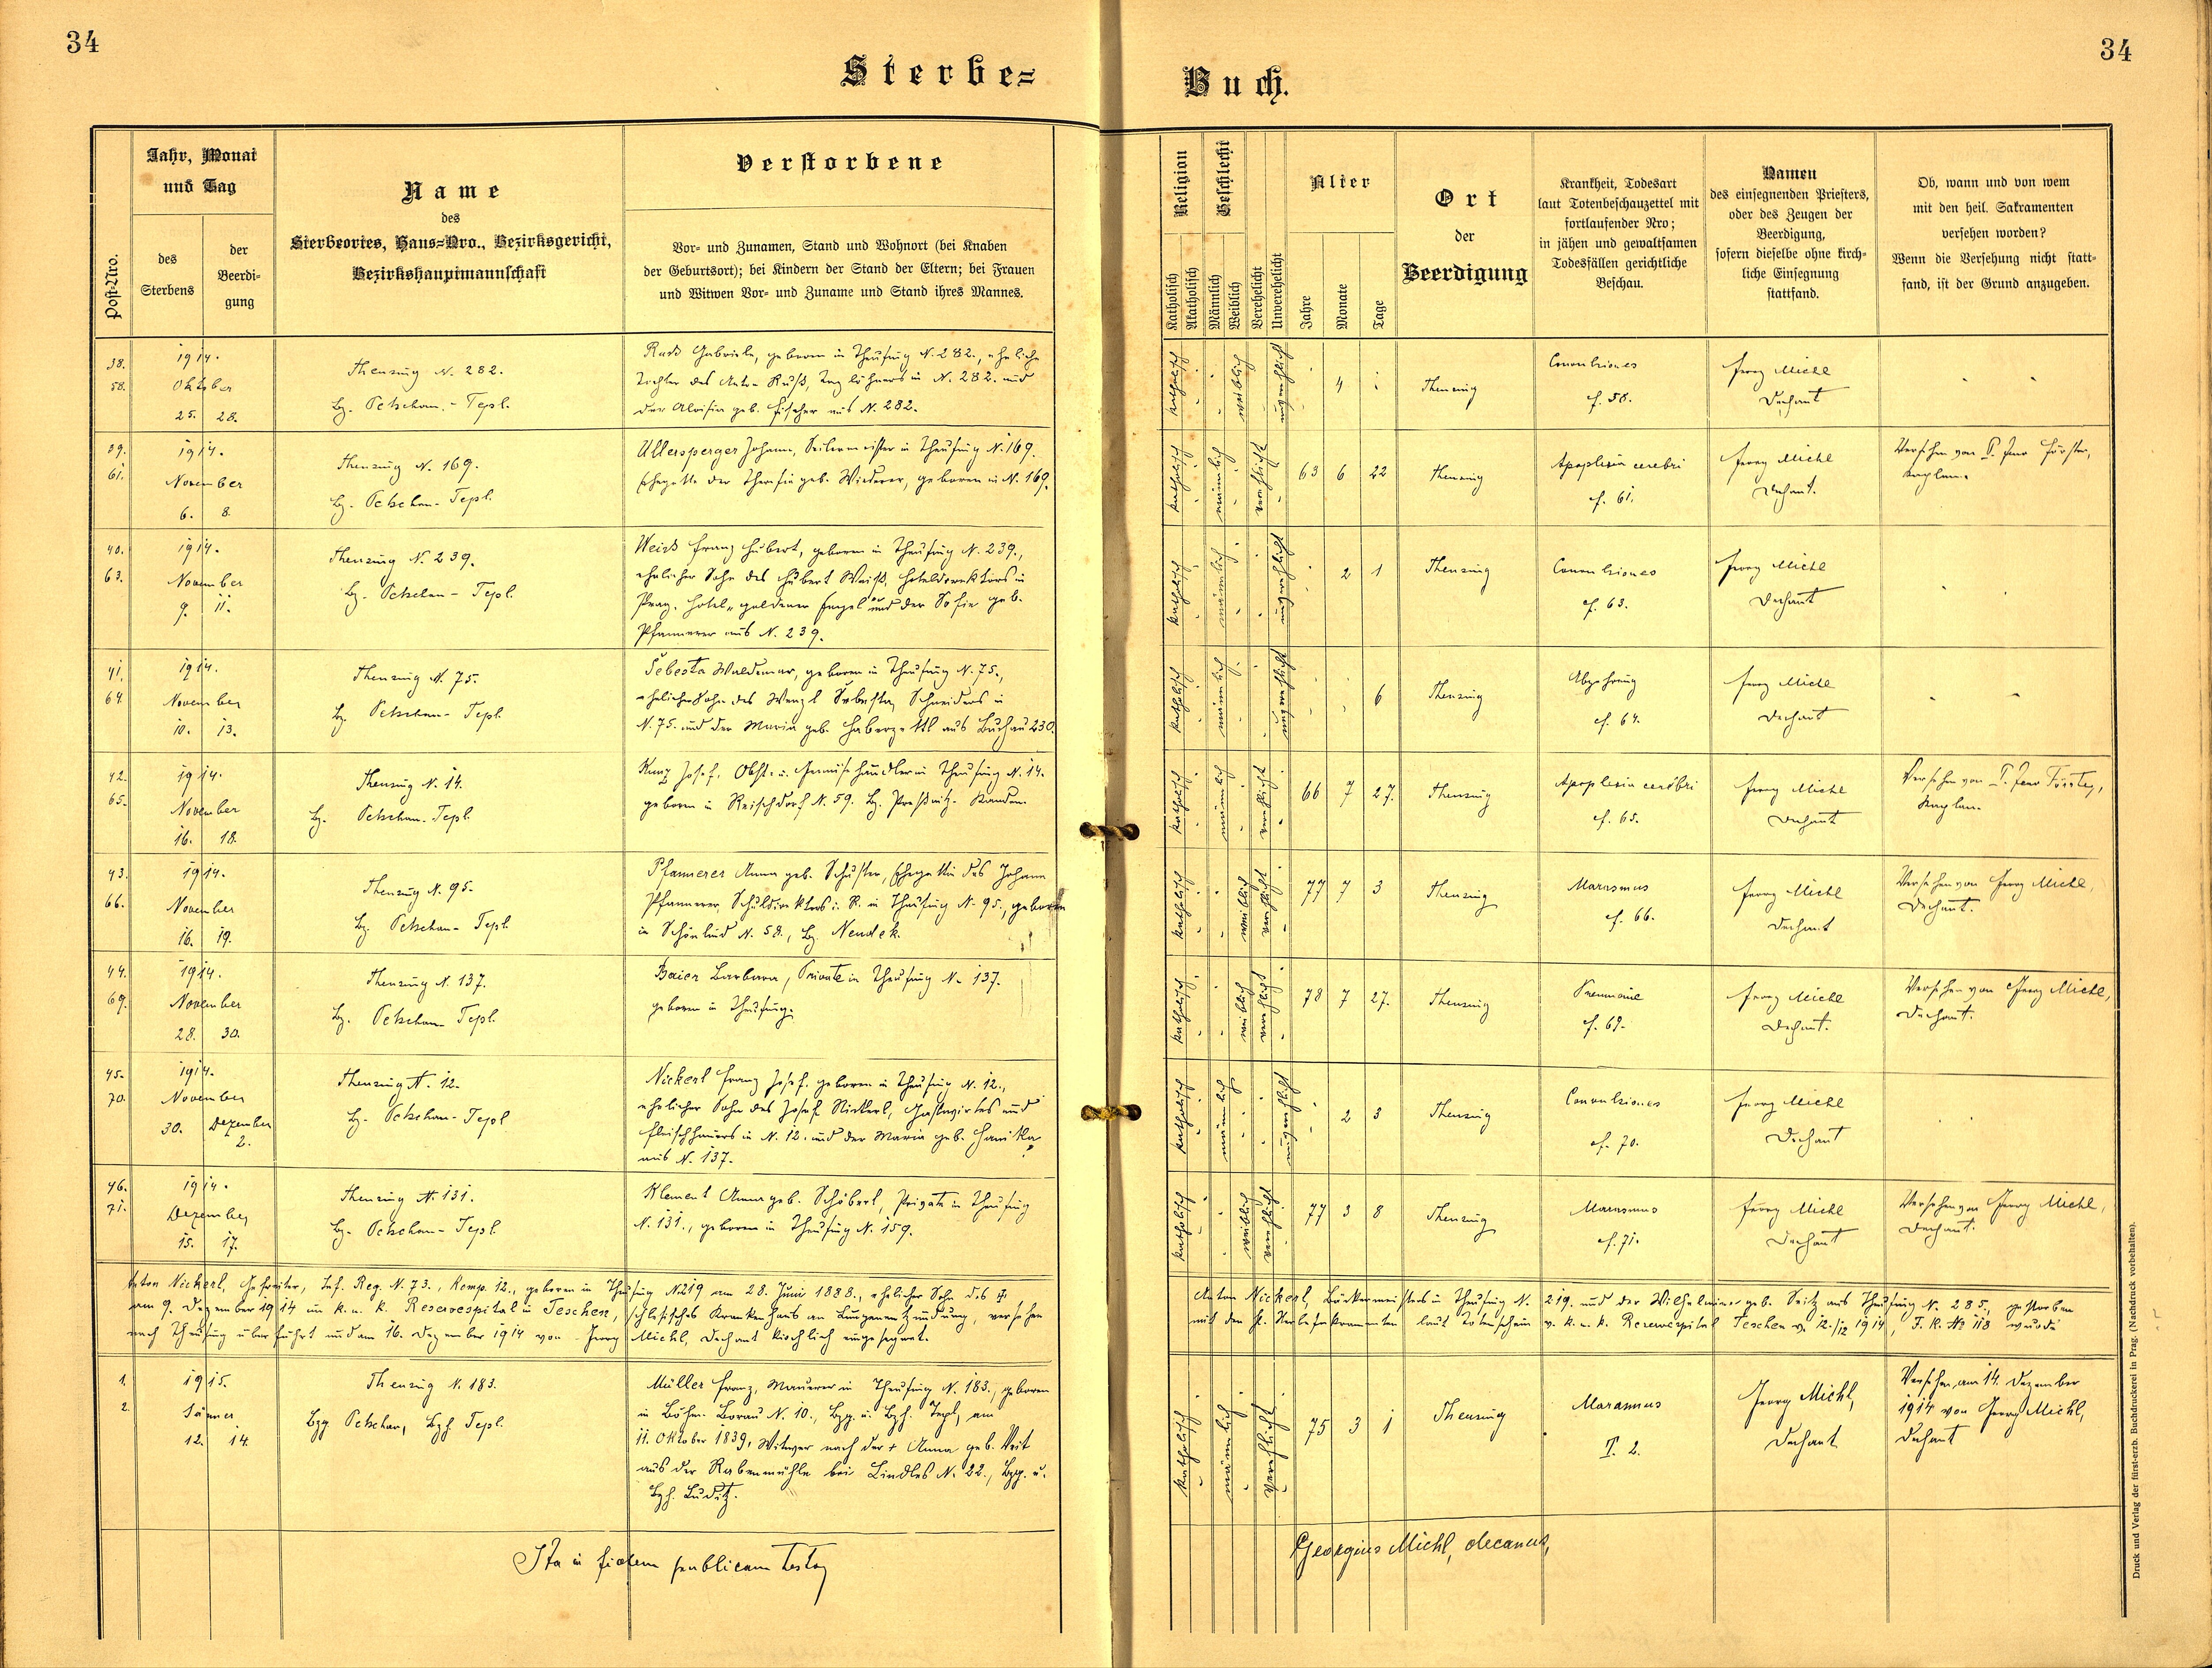 34
34
Sterbe=
Buch.
Post-Nro.
Jahr, Monat
und Tag
des
Sterbens
der
Beerdi-
gung
Name
des
Sterbeortes, Haus=Nro., Bezirksgericht,
Bezirkshauptmannschaft
Verstorbene
Vor- und Zunamen, Stand und Wohnort (bei Knaben
der Geburtsort); bei Kindern der Stand der Eltern; bei Frauen
und Witwen Vor- und Zuname und Stand ihres Mannes.
Religion
Katholisch
Akatholisch
Geschlecht
Männlich
Weiblich
Verehelicht
Unverehelicht
Alter
Jahre
Monate
Tage
Ort
der
Beerdigung
Krankheit, Todesart
laut Totenbeschauzettel mit
fortlaufender Nro;
in jähen und gewaltsamen
Todesfällen gerichtliche
Beschau.
Namen
des einsegnenden Priesters,
oder des Zeugen der
Beerdigung,
sofern dieselbe ohne kirch-
liche Einsegnung
stattfand.
Ob, wann und von wem
mit den heil. Sakramenten
versehen worden?
Wenn die Versehung nicht statt-
fand, ist der Grund anzugeben.
38.
58.
1914.
Oktober
25. 28.
Theusing N. 282.
Bz. Petschau - Tepl.
Russ Gabriele, geboren in Theusing N. 282., eheliche
Tochter des Anton Ruß, Taglöhners in N. 282. und
der Aloisia geb. Fischer aus N. 282.
katholisch
weiblich
unverehelicht
4
Theusing
Convulsiones
cf. 58.
Georg Michl
Dechant
39.
61.
1914.
November
6. 8.
Theusing N. 169.
Bz. Petschau - Tepl.
Ullersperger Johann, Seilermeister in Theusing N. 169.
Ehegatte der Theresia geb. Wiederer, geboren in N. 169.
katholisch
männlich
verehelicht
63 6 22
Theusing
Apoplexia cerebri
cf. 61.
Georg Michl
Dechant.
Versehen von P. Förster,
Kaplan.
40.
63.
1914.
November
9. 11.
Theusing N. 239.
Bz. Petschau - Tepl.
Weiss Franz Hubert, geboren in Theusing N. 239.,
ehelicher Sohn des Hubert Weiß, Hoteldirektors in
Prag, Hotel „goldener Engel" und der Sofie geb.
Pfannerer aus N. 239.
katholisch
männlich
unverehelicht
2 1
Theusing
Convulsiones
cf. 63.
Georg Michl
Dechant
41.
64.
1914.
November
10. 13.
Theusing N. 75.
Bz. Petschau - Tepl.
Šebesta Waldemar, geboren in Theusing N. 75.,
ehelicher Sohn des Wenzl Sebesta, Schneiders in
N. 75. und der Maria geb. Haberzettl aus Buchau 230.
katholisch
männlich
unverehelicht
6
Theusing
Abzehrung
cf. 64.
Georg Michl
Dechant
42.
65.
1914.
November
16. 18.
Theusing N. 14.
Bz. Petschau - Tepl.
Kunz Josef, Obst- u. Gemüsehändler in Theusing N. 14.
geboren in Reischdorf N. 59. Bz. Preßnitz - Kaaden.
katholisch
männlich
verehelicht
66 7 27.
Theusing
Apoplexia cerebri
cf. 65.
Georg Michl
Dechant
Versehen von P. Förster,
Kaplan.
43.
66.
1914.
November
16. 19.
Theusing N. 95.
Bz. Petschau - Tepl.
Pfannerer Anna geb. Schuster, Ehegattin des Johann
Pfannerer, Schuldirektors i. R. in Theusing N. 95., geboren
in Schönlind N. 58., Bz. Neudek.
katholisch
weiblich
verehelicht
77 7 3
Theusing
Marasmus
cf. 66.
Georg Michl
Dechant
Versehen von Georg Michl,
Dechant.
44.
69.
1914.
November
28. 30.
Theusing N. 137.
Bz. Petschau - Tepl.
Baier Barbara, Private in Theusing N. 137.
geboren in Theusing.
katholisch
weiblich
verehelicht
78 7 27.
Theusing
Pneumonie
cf. 69.
Georg Michl
Dechant.
Versehen von Georg Michl,
Dechant.
45.
70.
1914.
November
30. Dezember
2.
Theusing N. 12.
Bz. Petschau - Tepl
Nickerl Franz Josef, geboren in Theusing N. 12.,
ehelicher Sohn des Josef Nickerl, Gastwirtes und
Fleischhauers in N. 12. und der Maria geb. Hanika
aus N. 137.
katholisch
männlich
unverehelicht
2 3
Theusing
Convulsiones
cf. 70.
Georg Michl
Dechant
46.
71.
1914.
Dezember
15. 17.
Theusing N. 131.
Bz. Petschau - Tepl.
Klement Anna geb. Schöberl, Private in Theusing
N. 131., geboren in Theusing N. 159.
katholisch
weiblich
verehelicht
77 3 8
Theusing
Marasmus
cf. 71.
Georg Michl
Dechant
Versehen von Georg Michl,
Dechant.
Anton Nickerl, Gefreiter, Inf. Reg. N. 73., Komp. 12., geboren in Theusing N 219 am 28. Juni 1888., ehelicher Sohn des † Anton Nickerl, Bäckermeisters in Theusing N. 219. und der Wilhelmine geb. Seitz aus Theusing N. 285., gestorben
am 9. Dezember 1914 im k. u. k. Reservespital in Teschen, schlesisches Krankenhaus an Lungenentzündung, versehen mit den hl. Sterbesakramenten laut Totenschein v. k. u. k. Reservespital Teschen v. 12./12 1914, J. K. № 118 wurde
nach Theusing überführt und am 16. Dezember 1914 von Georg Michl, Dechant kirchlich eingesegnet.
1.
2.
1915.
Jänner
12. 14.
Theusing N. 183.
Bzg. Petschau, Bzh. Tepl.
Müller Franz, Maurer in Theusing N. 183., geboren
in Böhm. Borau N. 10., Bzg. u. Bzh. Tepl, am
11. Oktober 1839, Witwer nach der † Anna geb. Veit
aus der Rabenmühle bei Lindles N. 22., Bzg. u.
Bzh. Luditz.
katholisch
männlich
verehelicht
75 3 1
Theusing
Marasmus
T. 2.
Georg Michl,
Dechant
Versehen am 14. Dezember
1914 von Georg Michl,
Dechant
Ita in fidem publicam testor
Georgius Michl, decanus,
Druck und Verlag der fürst-erzb. Buchdruckerei in Prag. (Nachdruck vorbehalten).